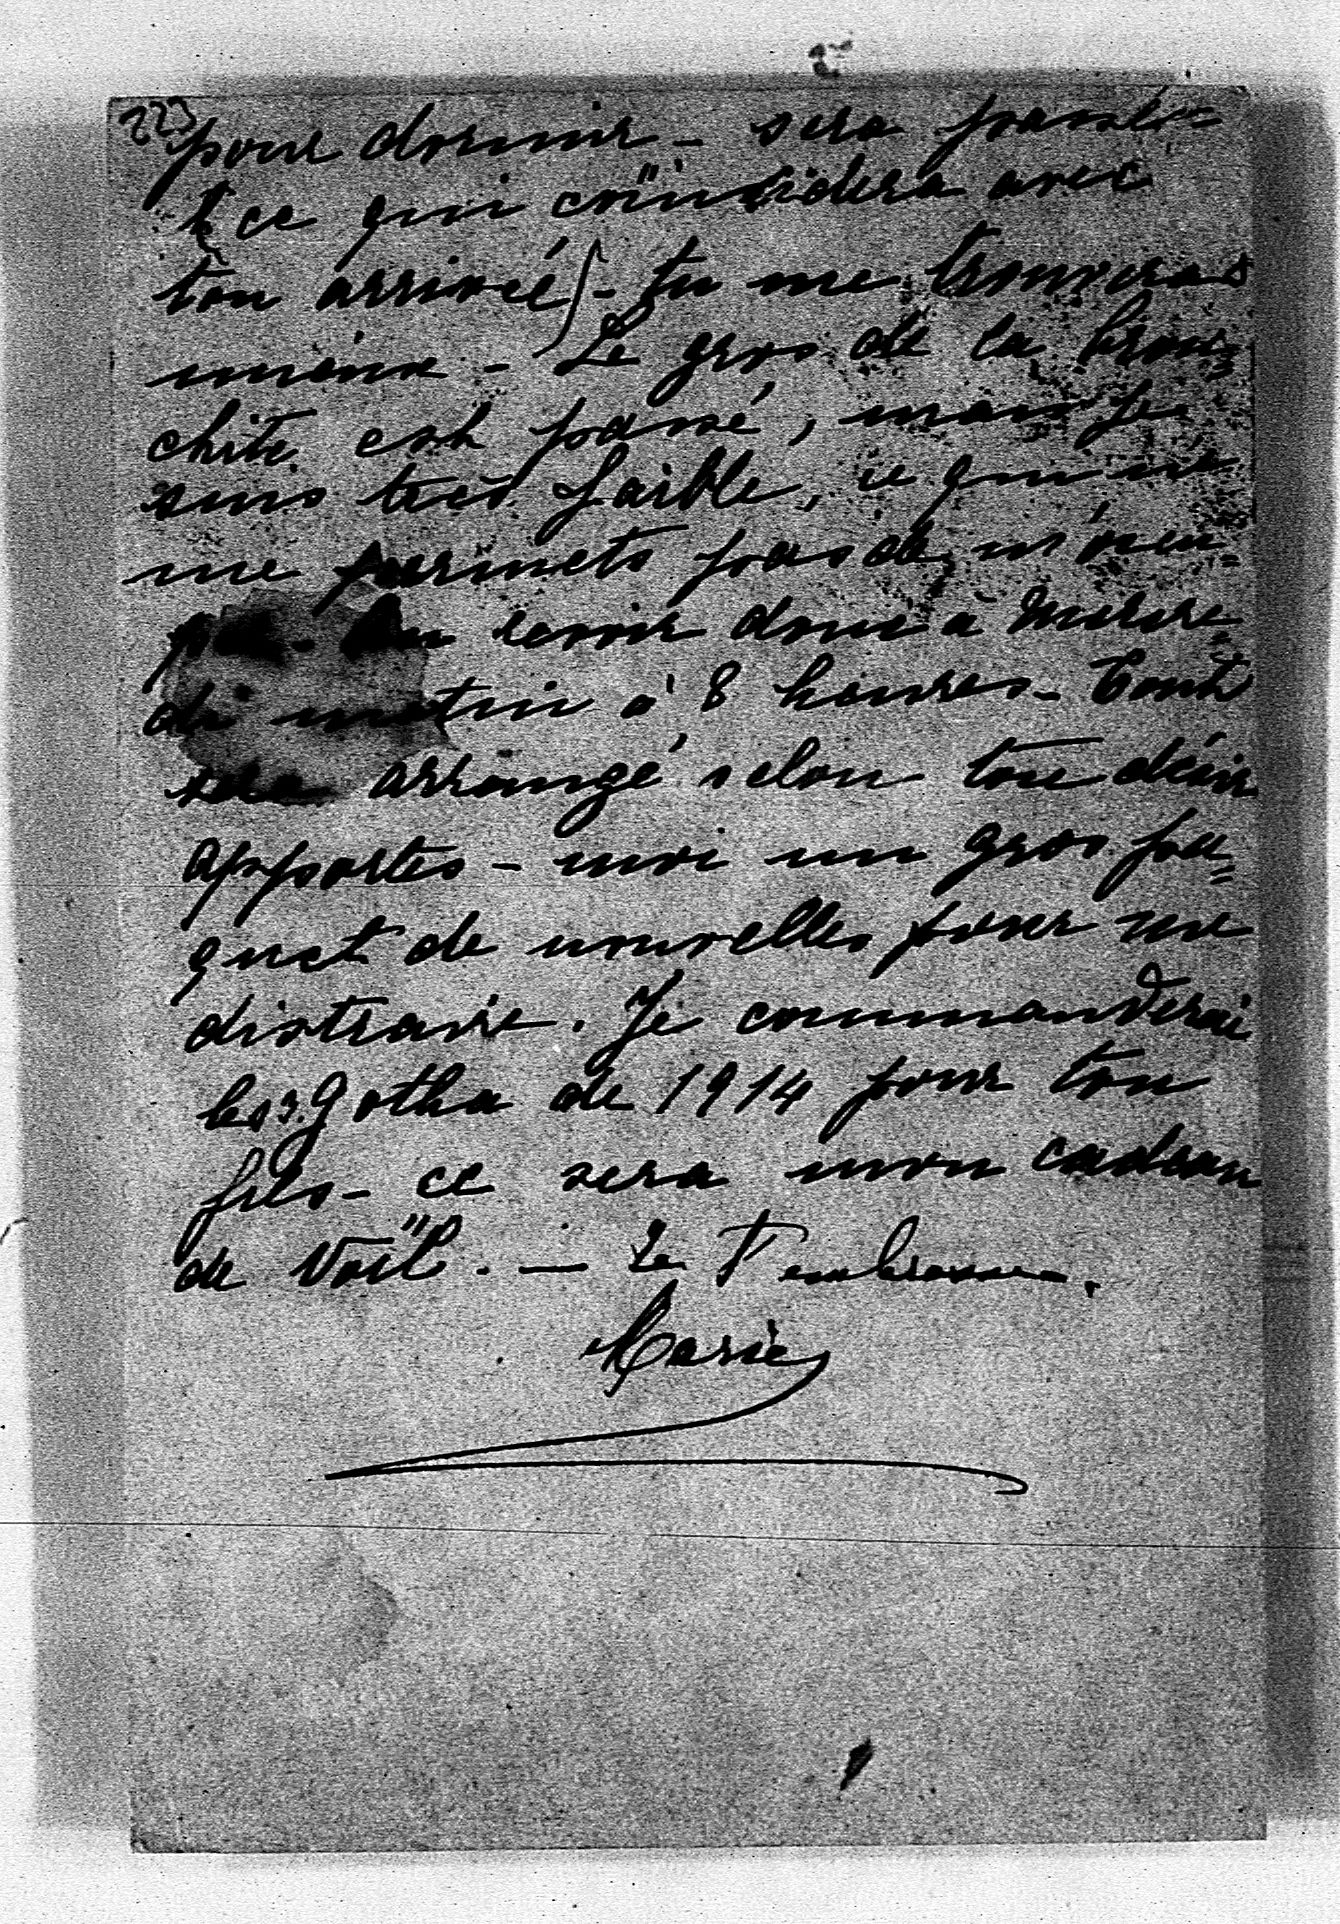 223
pour dormir – sera passé =
& ce qui coïncidera avec
ton arrivée) – tu me trouveras
mieux – Le gros de la bron =
chite est passé, mais je
suis très faible, ce qui ne
me permets pas de m'occu =
per. Au revoir donc à Mercre =
di matin à 8 heures – Tout
sera arrangé selon ton désir
apportes – moi un gros pa =
quet de nouvelles pour me
distraire. Je commanderai
les 3. Gotha de 1914 pour ton
fils – ce sera mon cadeau
de Noël. – Je t'embrasse.
Marie